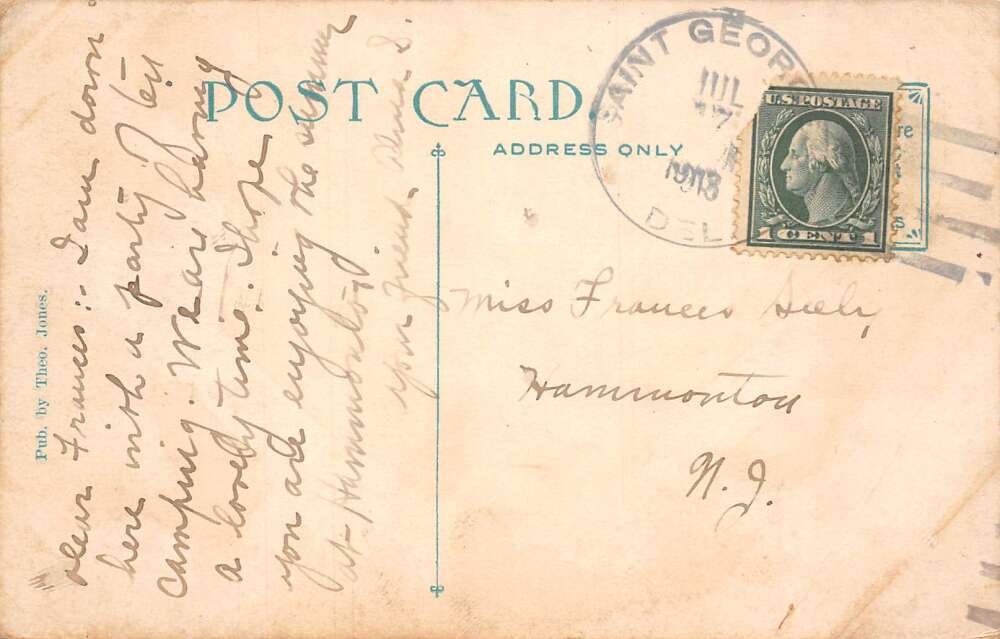 POST CARD
ADDRESS ONLY
SAINT GEOR
JUL
17
1913
DEL
U.S. POSTAGE
1 CENT 1
re
s
Pub. by Theo. Jones.
Dear Frances:- I am down
here with a party
camping. We are having
a lovely time. I hope
you are enjoying the summer
at Hammonton
your friend,
Miss Frances
Hammonton
N. J.